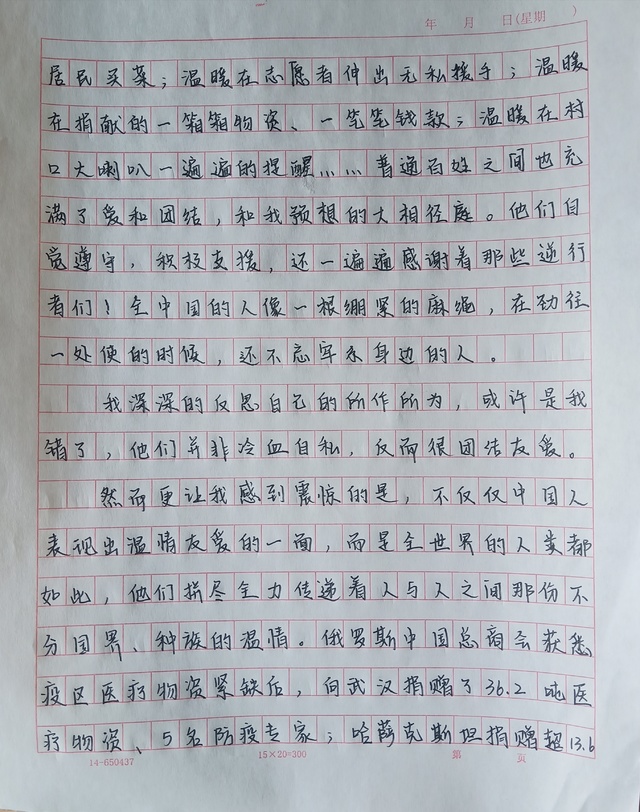 年 月 日(星期 )
居民买菜；温暖在志愿者伸出无私援手；温暖
在捐献的一箱箱物资、一笔笔钱款；温暖在村
口大喇叭一遍遍的提醒……普通百姓之间也充
满了爱和团结，和我预想的大相径庭。他们自
觉遵守，积极支援，还一遍遍感谢着那些逆行
者们！全中国的人像一根绷紧的麻绳，在劲往
一处使的时候，还不忘牢系身边的人。
我深深的反思自己的所作所为，或许是我
错了，他们并非冷血自私，反而很团结友爱。
然而更让我感到震惊的是，不仅仅中国人
表现出温情友爱的一面，而是全世界的人类都
如此，他们拼尽全力传递着人与人之间那份不
分国界、种族的温情。俄罗斯中国总商会获悉
疫区医疗物资紧缺后，向武汉捐赠了36.2吨医
疗物资、5名防疫专家；哈萨克斯坦捐赠超13.6
14-650437 15×20=300 第 页